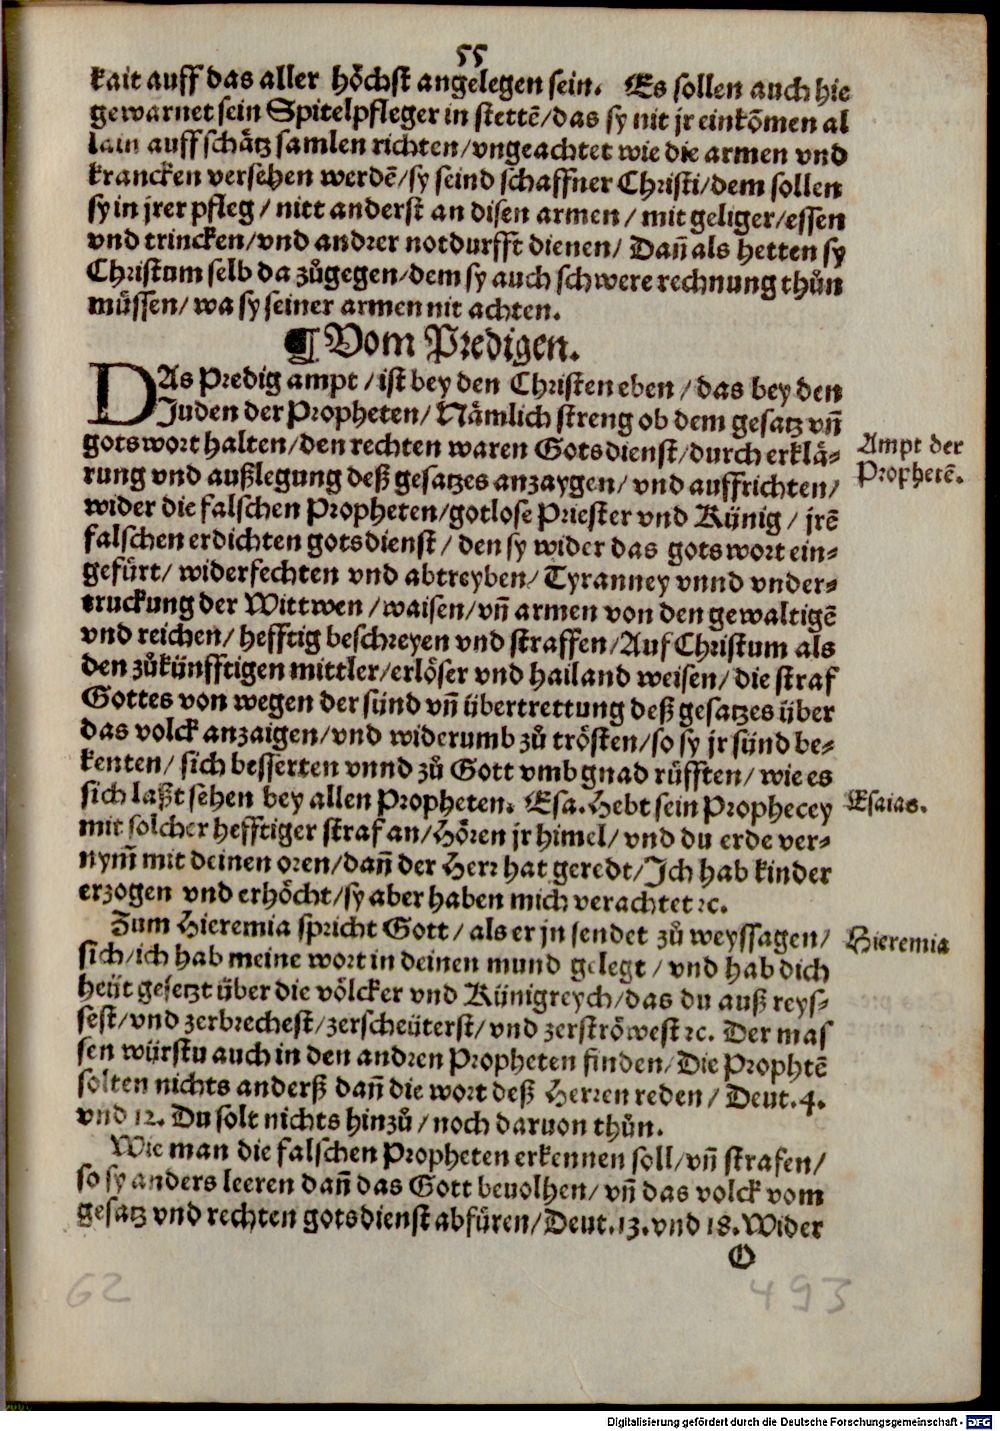 55
kait auff das aller höchst angelegen sein. Es sollen auch hie
gewarnet sein Spitelpfleger in stettẽ/das sy nit jr einkõmen al
lain auff schätz samlen richten/vngeachtet wie die armen vnd
krancken versehen werdẽ/sy seind schaffner Christi/dem sollen
sy in jrer pfleg/nitt anderst an disen armen/mit geliger/essen
vnd trincken/vnd andrer notdurfft dienen/Dañ als hetten sy
Christum selb da zůgegen/dem sy auch schwere rechnung thůn
müssen/wa sy seiner armen nit achten.
¶ Vom Predigen.
DAs Predig ampt/ist bey den Christen eben/das bey den
Juden der Propheten/Nämlich streng ob dem gesatz vñ
gotswort halten/den rechten waren Gotsdienst/durch erklä-
Ampt der
Prophetẽ.
rung vnd außlegung deß gesatzes anzaygen/vnd auffrichten/
wider die falschen Propheten/gotlose Priester vnd Künig/jrẽ
falschen erdichten gotsdienst/den sy wider das gotswort ein-
gefürt/widerfechten vnd abtreyben/Tyranney vnnd vnder-
truckung der Wittwen/waisen/vñ armen von den gewaltigẽ
vnd reichen/hefftig beschreyen vnd straffen/Auf Christum als
den zůkünfftigen mittler/erlöser vnd hailand weisen/die straf
Gottes von wegen der sünd vñ übertrettung deß gesatzes über
das volck anzaigen/vnd widerumb zů trösten/so sy jr sünd be-
kenten/sich besserten vnnd zů Gott vmb gnad rüfften/wie es
sich laßt sehen bey allen Propheten. Esa. Hebt sein Prophecey
Esaias.
mit solcher hefftiger straf an/Hören jr himel/vnd du erde ver-
nym̃ mit deinen oren/dañ der Herr hat geredt/Ich hab kinder
erzogen vnd erhöcht/sy aber haben mich verachtet ꝛc.
Zum Hieremia spricht Gott/als er jn sendet zů weyssagen/
Hieremia
sich/ich hab meine wort in deinen mund gelegt/vnd hab dich
heüt gesetzt über die völcker vnd Künigreych/das du auß reys-
sest/vnd zerbrechest/zerscheüterst/vnd zerströwest ꝛc. Der mas
sen würstu auch in den andren Propheten finden/Die Prophtẽ
solten nichts anderß dañ die wort deß Herren reden/Deut. 4.
vnd 12. Du solt nichts hinzů/noch daruon thůn.
Wie man die falschen Propheten erkennen soll/vñ strafen/
so sy anders leeren dañ das Gott beuolhen/vñ das volck vom
gesatz vnd rechten gotsdienst abfüren/Deut. 13. vnd 18. Wider
O
62
493
Digitalisierung gefördert durch die Deutsche Forschungsgemeinschaft - DFG